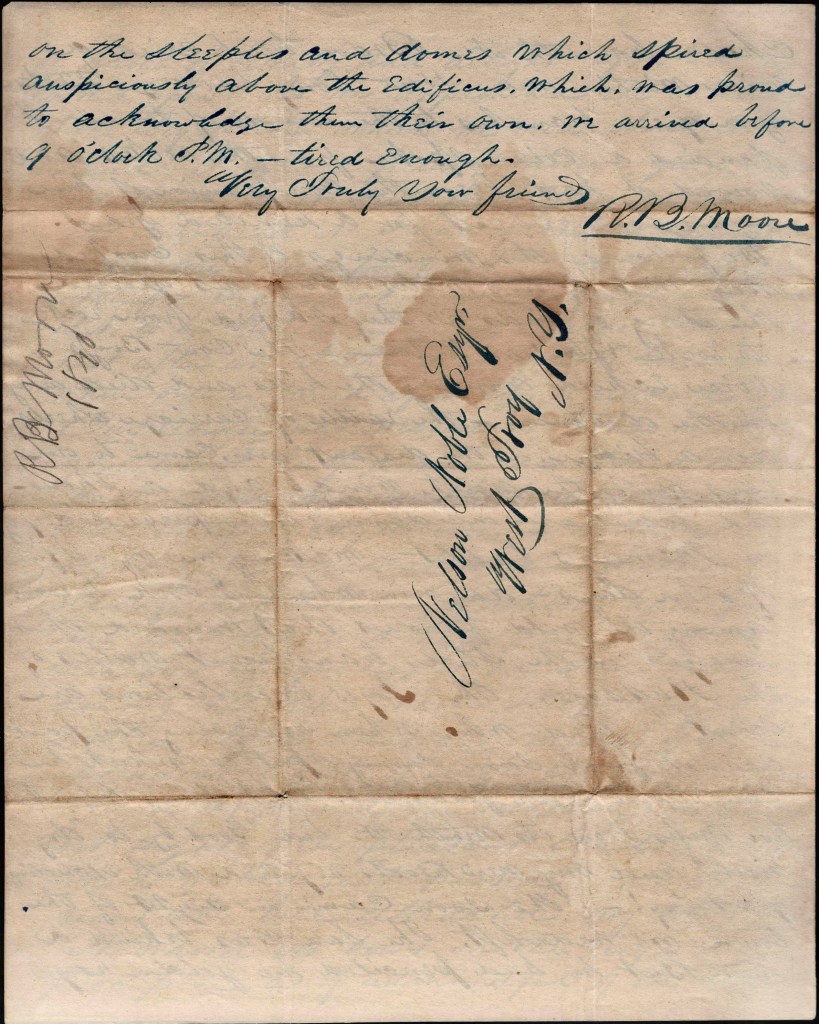 on the steeples and domes which spired
auspiciously above the Edifices. which. was proud
to acknowledge them their own. we arrived before
9 o'clock P.M. — tired enough.
Very Truly Your friend
R. B. Moore
R B Moore
1840
Nelson Noble Esqr.
West Troy
N.Y.